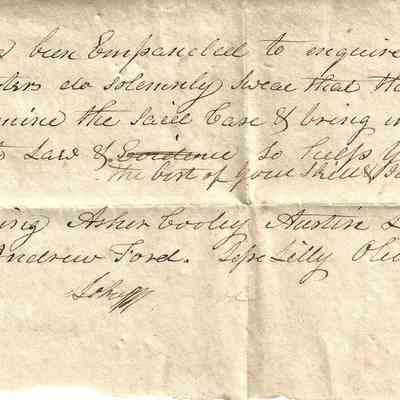 been Empanelled to enquire
do solemnly swear that th
mine the said Case & bring in
Law & Evidence so helps
the best of your Skill &
ing Asher Cooley Austin L
Andrew Ford. Jesse Lilly Oli